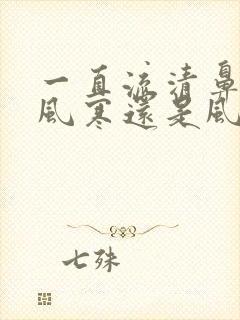 一直流清鼻
風寒還是風
七殊